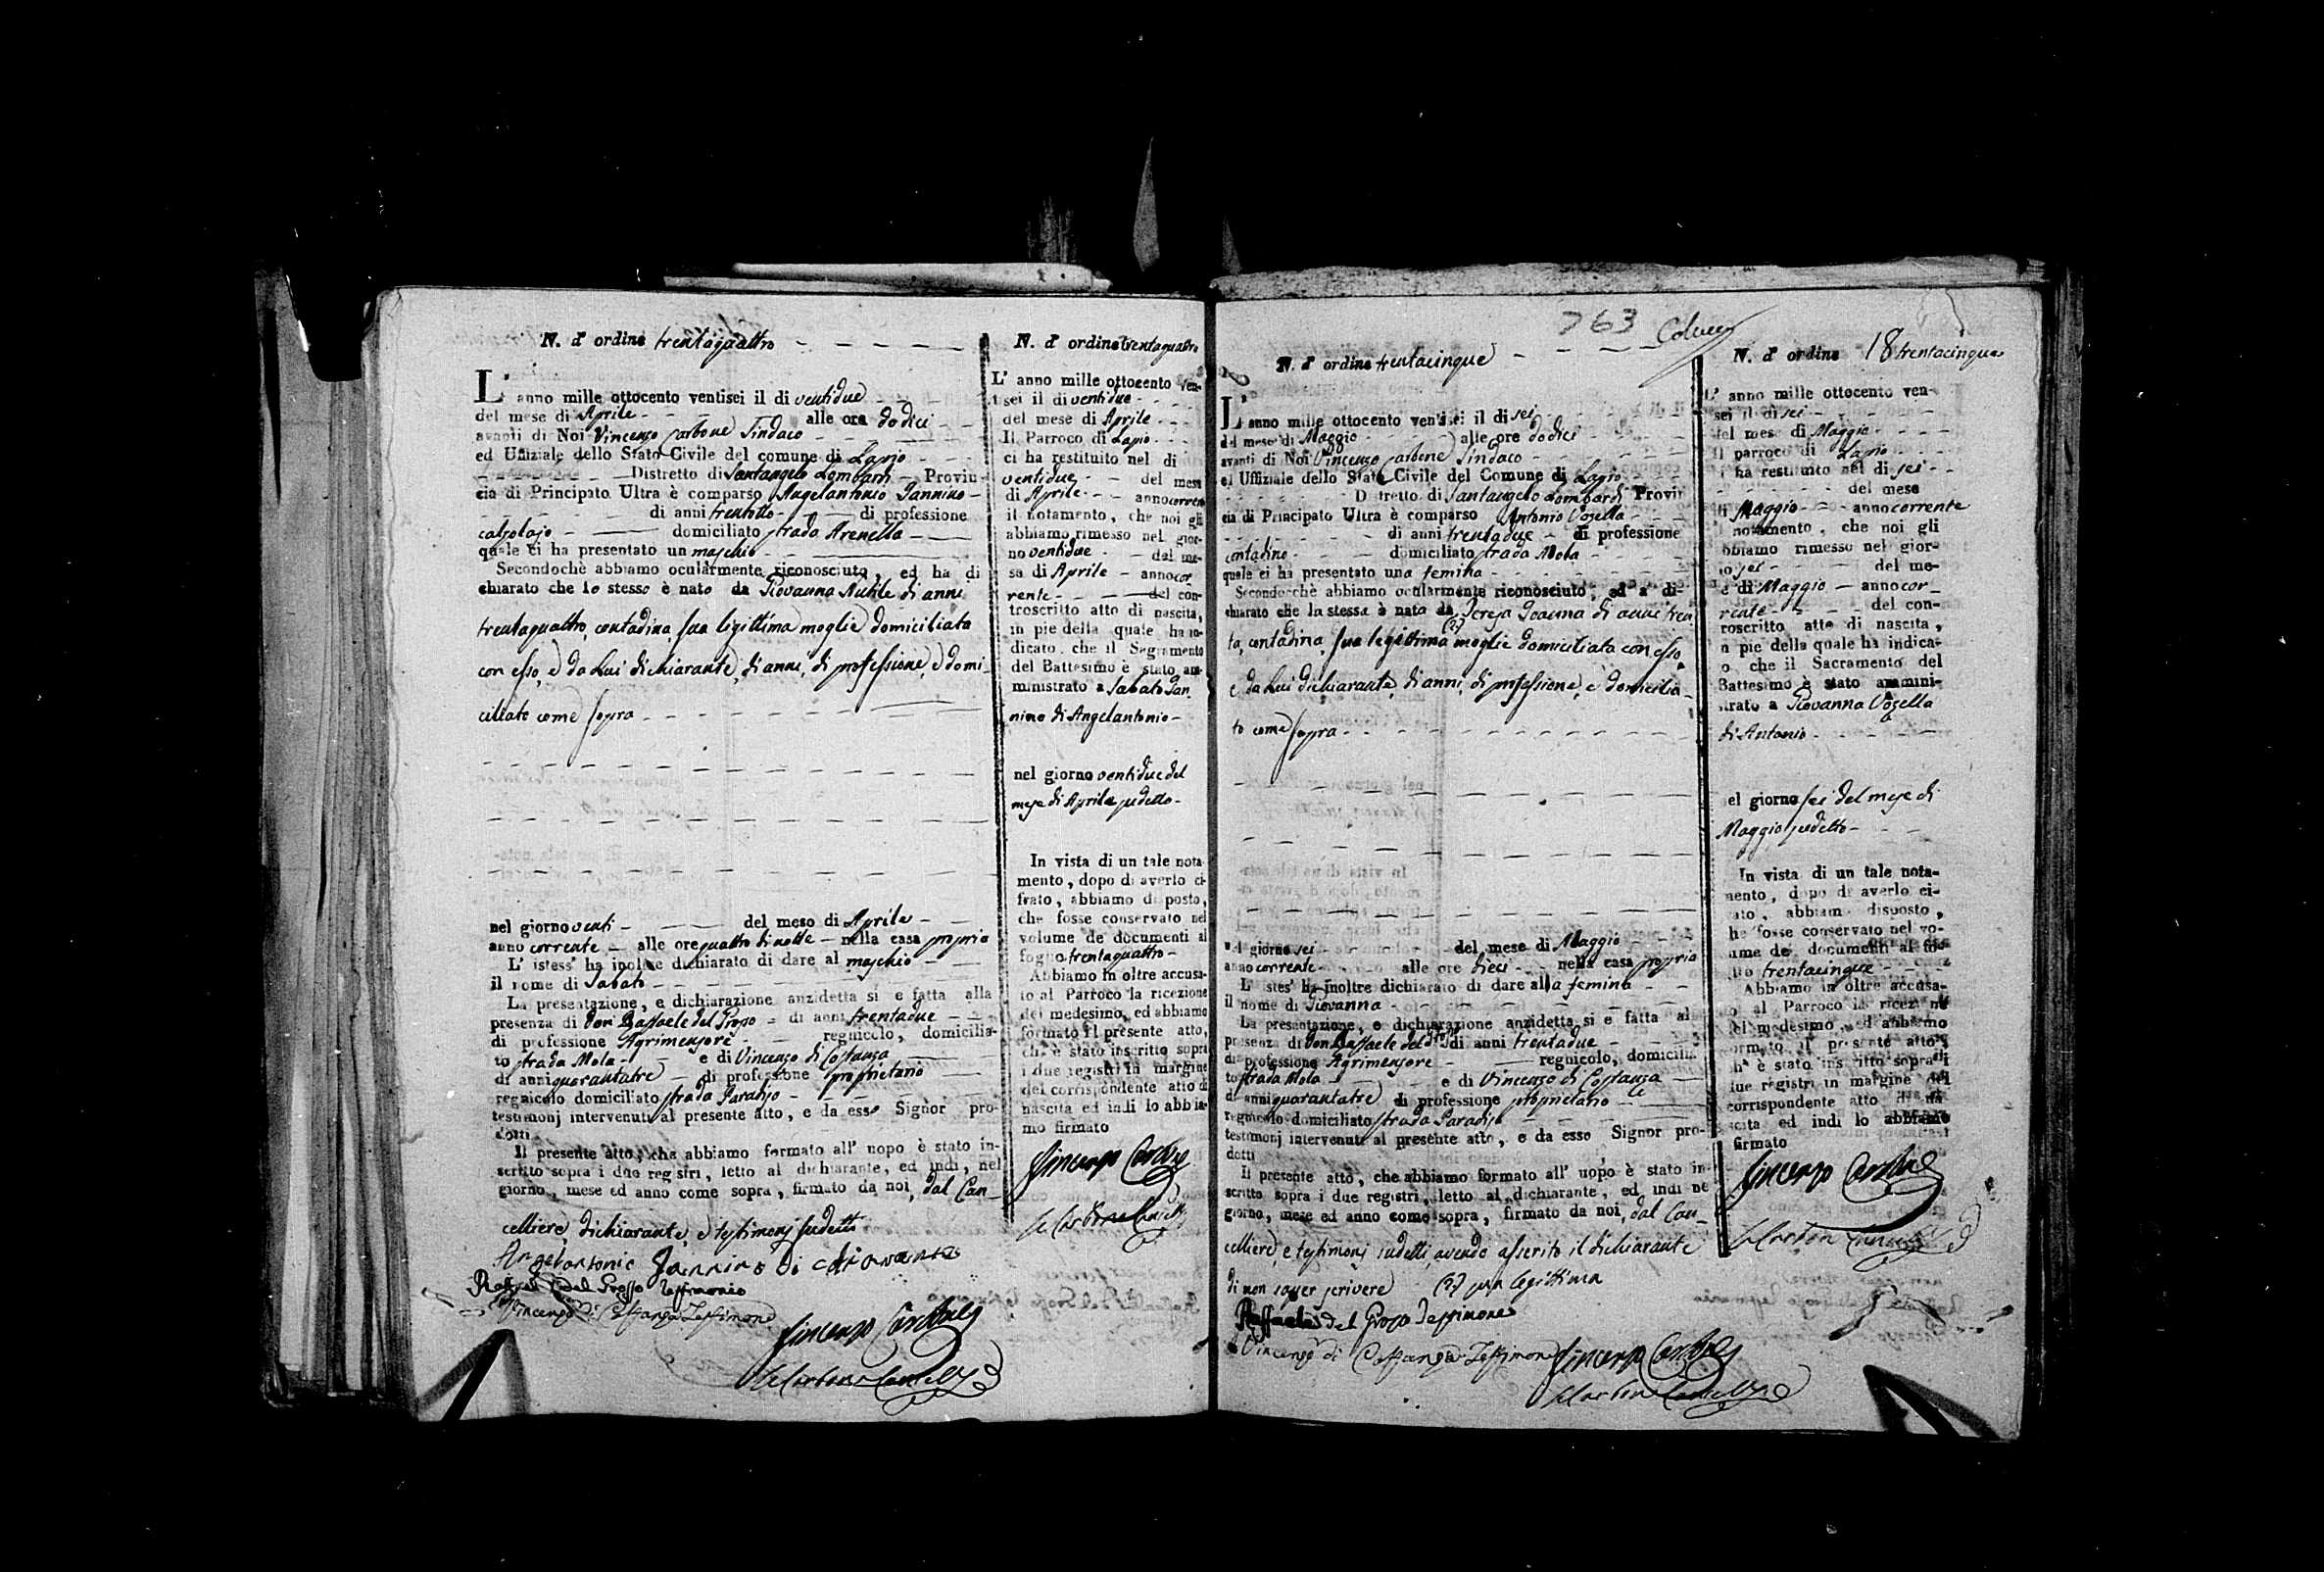 N. d' ordine trentaquattro
L' anno mille ottocento ventisei il di ventidue
del mese di Aprile alle ore dodici
avanti di Noi Vincenzo Carbone Sindaco
ed Uffiziale dello Stato Civile del comune di Lapio
Distretto di Santangelo Lombardi Provin-
cia di Principato Ultra è comparso Angelantonio Iannino
di anni trentotto di professione
calzolajo domiciliato strada Arenella
quale ci ha presentato un maschio
Secondochè abbiamo ocularmente riconosciuto, ed ha di
chiarato che lo stesso è nato da Giovanna Nutile di anni
trentaquattro, contadina, sua legittima moglie domiciliata
con esso, e da Lui dichiarante, di anni, di professione, e domi-
ciliato come sopra
nel giorno venti del mese di Aprile
anno corrente alle ore quattro di notte nella casa propria
L' istess' ha inoltre dichiarato di dare al maschio
il nome di Sabato
La presentazione, e dichiarazione anzidetta si e fatta alla
presenza di Don Raffaele del Grosso di anni trentadue
di professione Agrimensore regnicolo, domicilia-
to strada Mola e di Vincenzo di Costanza
di anni quarantatre di professione proprietario
regnicolo domiciliato strada Paradiso
testimonj intervenuti al presente atto, e da esso Signor pro-
dotti.
Il presente atto, che abbiamo formato all' uopo è stato in-
scritto sopra i due registri, letto al dichiarante, ed indi, nel
giorno, mese ed anno come sopra, firmato da noi, dal Can-
celliere, dichiarante, e testimonj sudetti
Angelantonio Iannino di Giovanne
Raffaele del Grosso Testimonio
Vincenzo di Costanza Testimone
Vincenzo Carbone
N. d' ordine trentaquattro
L' anno mille ottocento ven-
tisei il di ventidue
del mese di Aprile
Il Parroco di Lapio
ci ha restituito nel di
ventidue del mese
di Aprile anno corrente
il notamento, che noi gli
abbiamo rimesso nel gior-
no ventidue del me-
se di Aprile anno cor
rente del con-
troscritto atto di nascita,
in pie della quale ha in-
dicato, che il Sagramento
del Battesimo è stato am-
ministrato a Sabato Ian
nino di Angelantonio
nel giorno ventidue del
mese di Aprile sudetto
In vista di un tale nota-
mento, dopo di averlo ci-
frato, abbiamo disposto,
che fosse conservato nel
volume de documenti al
fogno trentaquattro
Abbiamo in oltre accusa-
to al Parroco la ricezione
del medesimo, ed abbiamo
formato il presente atto,
che è stato inscritto sopra
i due registri in margine
del corrispondente atto di
nascita ed indi lo abbia-
mo firmato
Vincenzo Carbone
763
N. d' ordine trentacinque
L' anno mille ottocento ventisei il di sei
del mese di Maggio alle ore dodici
avanti di Noi Vincenzo Carbone Sindaco
ed Uffiziale dello Stato Civile del Comune di Lapio
Distretto di Santangelo Lombardi Provin
cia di Principato Ultra è comparso Antonio Vozella
di anni trentadue di professione
contadino domiciliato strada Mola
quale ci ha presentato una femina
Secondochè abbiamo ocularmente riconosciuto, ed a di-
chiarato che la stessa è nata da Teresa Ioanna di anni tren
ta, contadina, sua legittima moglie domiciliata con esso,
e da Lui dichiarante, di anni, di professione, e domicilia-
to come sopra
nel giorno sei del mese di Maggio
anno corrente alle ore dieci nella casa propria
L' istes' ha inoltre dichiarato di dare alla femina
il nome di Giovanna
La presentazione, e dichiarazione anzidetta si e fatta al
presenza di Don Raffaele del Grosso di anni trentadue
di professione Agrimensore regnicolo, domicilia
to strada Mola e di Vincenzo di Costanza
di anni quarantatre di professione proprietario
regnicolo domiciliato strada Paradiso
testimonj intervenuti al presente atto, e da esso Signor pro-
dotti
Il presente atto, che abbiamo formato all' uopo è stato in
scritto sopra i due registri, letto al dichiarante, ed indi ne
giorno, mese ed anno come sopra, firmato da noi, dal Can-
celliere, e testimonj sudetti, avendo asserito il dichiarante
di non saper scrivere sua legittima
Raffaele del Grosso Testimone
Vincenzo di Costanza Testimone
Vincenzo Carbone
N. d' ordine 18 trentacinque
L' anno mille ottocento ven-
sei il di sei
del mese di Maggio
Il parroco di Lapio
i ha restituito nel di sei
del mese
di Maggio anno corrente
notamento, che noi gli
bbiamo rimesso nel gior-
no sei del me-
e di Maggio anno cor
rente del con-
roscritto atto di nascita,
n pie della quale ha indica-
o che il Sacramento del
Battesimo è stato ammini-
trato a Giovanna Vozella
di Antonio
el giorno sei del mese di
Maggio sudetto
In vista di un tale nota-
mento, dopo di averlo ci-
ato, abbiamo disposto,
he fosse conservato nel vo-
ume de documenti al fo-
lio trentacinque
Abbiamo in oltre accusa-
o al Parroco la ricezione
el medesimo, ed abbiamo
ormato il presente atto,
h' è stato inscritto sopra i
due registri in margine del
corrispondente atto di na
scita ed indi lo abbiamo
firmato
Vincenzo Carbone